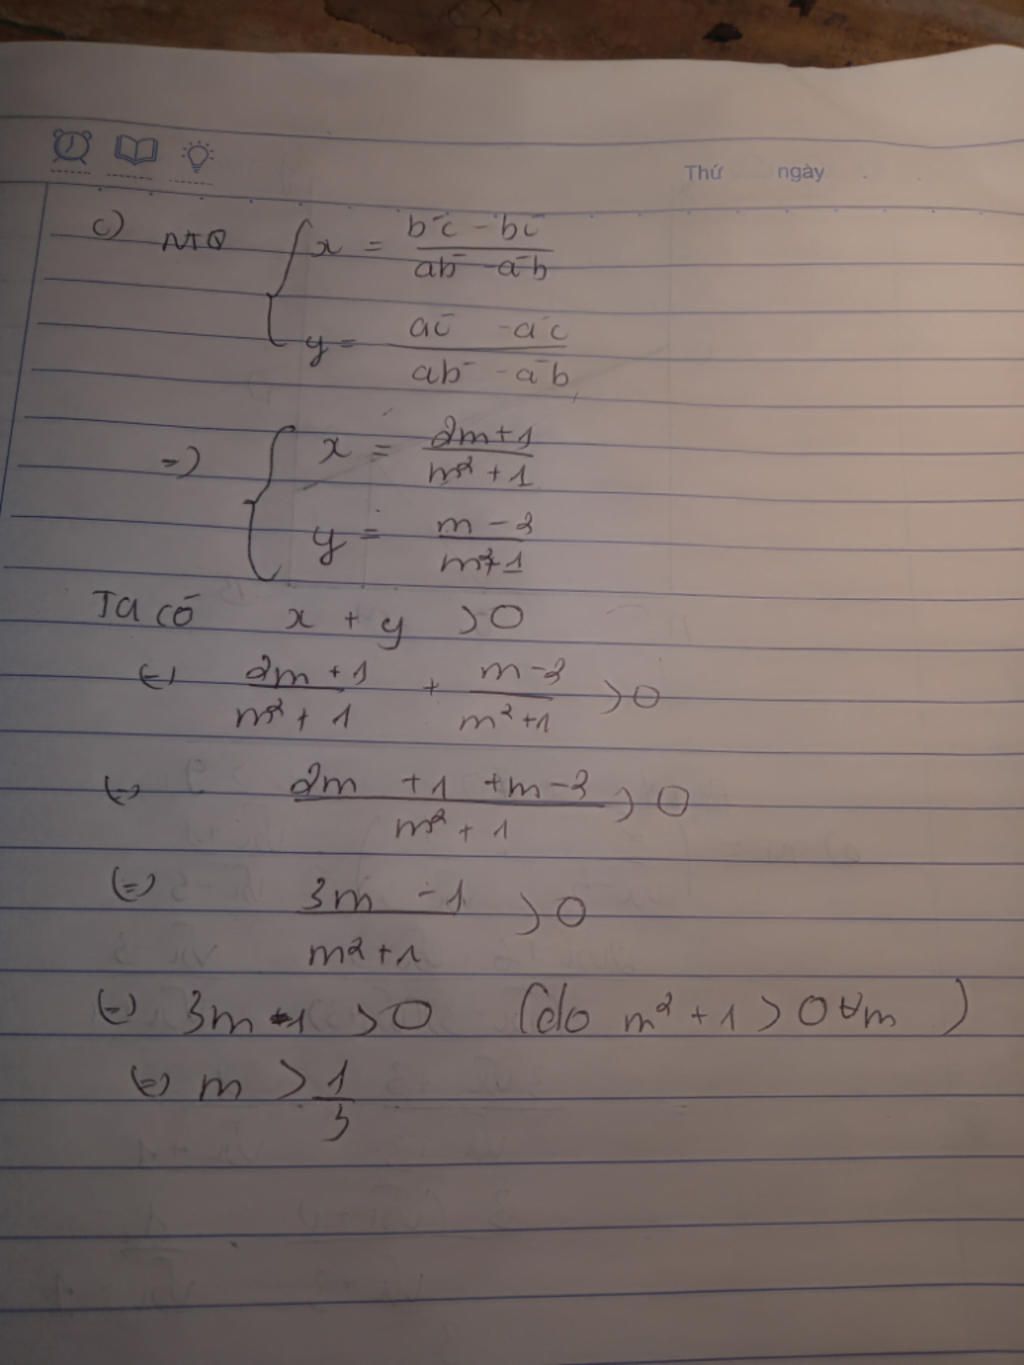 Thứ ngày
c) NTQ { x = (b'c - bc') / (ab' - a'b)
y = (ac' - a'c) / (ab' - a'b)
=> { x = (2m+1) / (m² + 1)
y = (m - 2) / (m²+1)
Ta có x + y > 0
(=) (2m + 1) / (m² + 1) + (m - 2) / (m² + 1) > 0
(=) (2m + 1 + m - 2) / (m² + 1) > 0
(=) (3m - 1) / (m² + 1) > 0
(=) 3m - 1 > 0 (do m² + 1 > 0 ∀m )
(=) m > 1/3